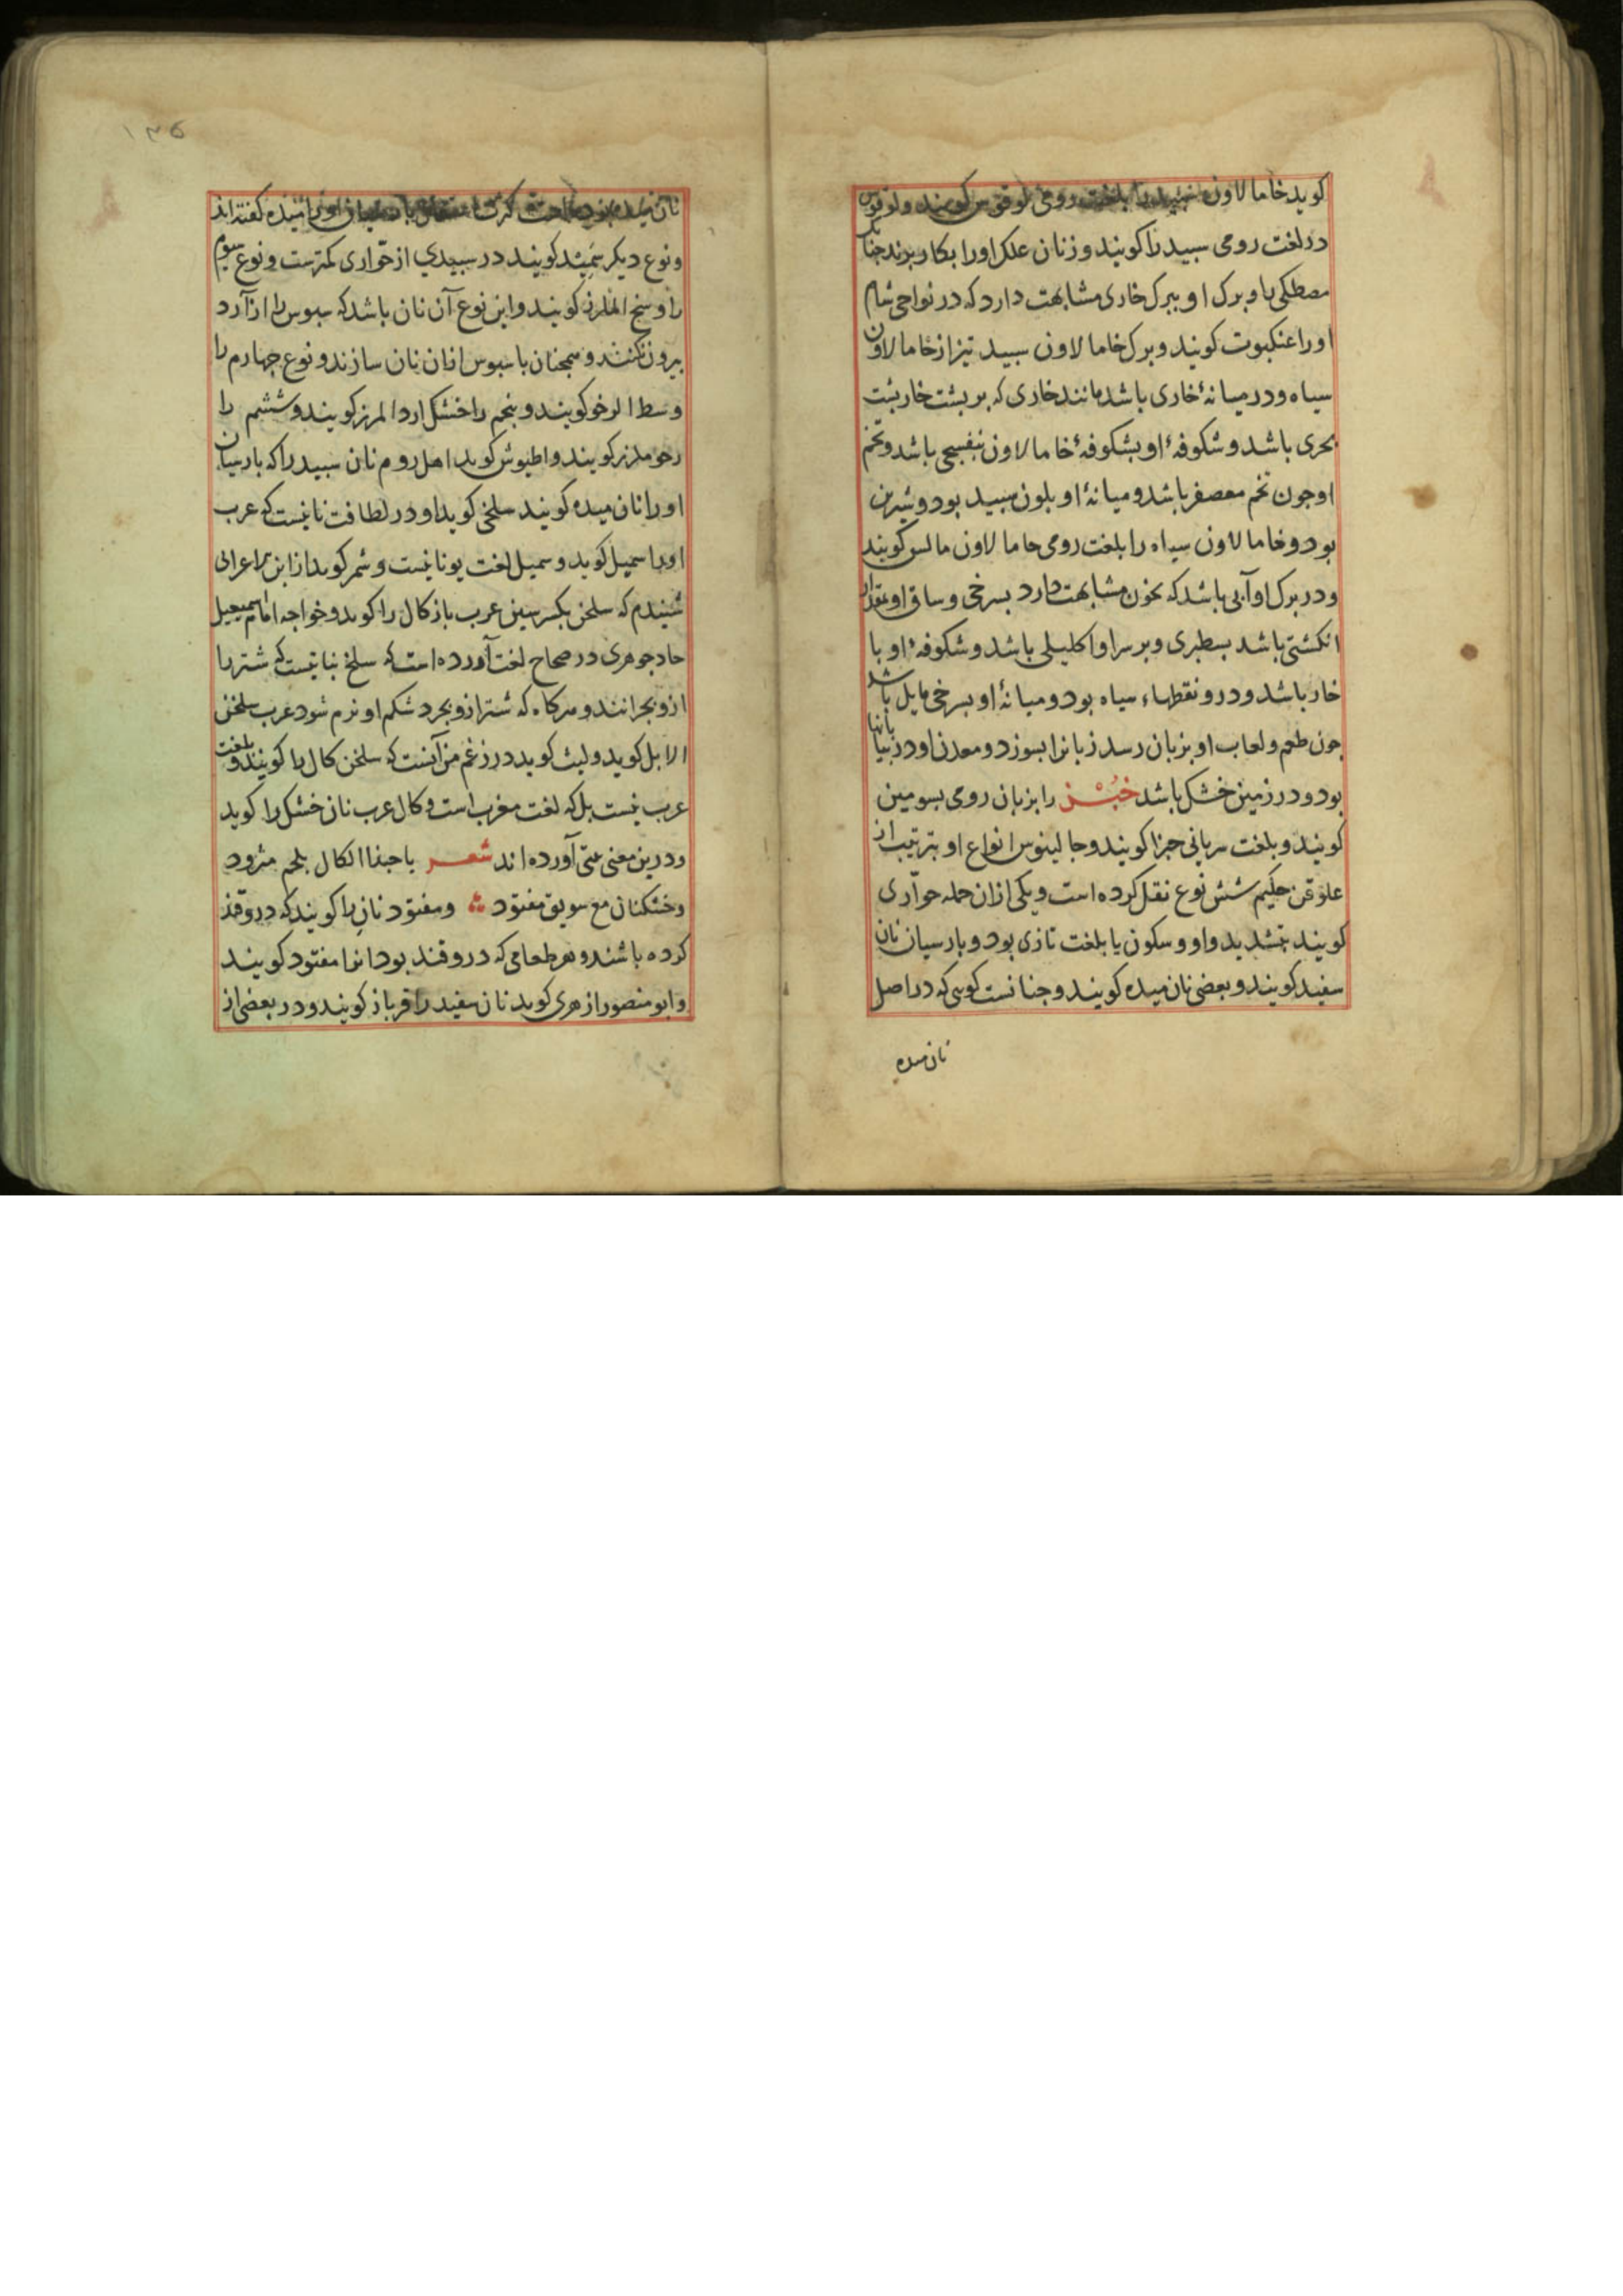 کوید خاما لاون سپید را بلغت رومی لوقوس کویند ولوقوس
در لغت رومی سبید را کویند و زنان علک او را بکار برند چنانک
مصطکی را و برک او ببرک خاری مشابهت دارد که در نواحی شام
او را عنکبوت کویند و برک خاما لاون سبید تیزتر از خاما لاون
سیاه ودر میانهٔ خاری باشد مانند خاری که بر پشت خاربشت
بحری باشد و شکوفهٔ او بشکوفهٔ خاما لاون بنفسجی باشد و تخم
او جون تخم معصفر باشد و میانهٔ او بلون سبید بود و شیرین
بود و خاما لاون سیاه را بلغت رومی حاما لاون مالس کویند
و در برک او آبی باشد که بخون مشابهت دارد بسرخی و ساق او بمقدار
انکشتی باشد بسطبری و بر سر او اکلیلی باشد و شکوفهٔ او با
خار باشد و درو نقطهاء سیاه بود و میانهٔ او بسرخی مایل باشد
جون طعم و لعاب او بزبان رسد زبانرا بسوزد و معدن او در بیابانها
بود و در زمین خشک باشد خُبْز را بزبان رومی بسومین
کویند و بلغت سریانی حبزا کویند و جالینوس انواع او بترتیب از
علوقن حکیم شش نوع نقل کرده است و یکی ازان جمله حوّاری
کویند بتشدید واو و سکون یا بلغت تازی بود و بارسیان نان
سفید کویند و بعضی نان میده کویند و جنانست کویی که در اصل
نان میده
۱۳۵
نان میده بوده است او را میده کفته اند
و نوع دیکر سَمِید کویند در سبیدی از حوّاری کمترست و نوع سیوم
را کویند و این نوع آن نان باشد که سبوس را از آرد
بیرون نکنند و همجنان با سبوس ازان نان سازند و نوع جهارم را
وسط کویند و بنجم را خشک ارد کویند و ششم را
کویند و اطیوش کوید اهل روم نان سبید را که بارسیان
او را نان میده کویند سلخن کوید او در لطافت نانیست که عرب
او را سمیل کوید و سمیل لغت یونانیست و شمر کوید از ابن اعرابی
شنیدم که سلخن بکسر سین عرب باز کال را کوید و خواجه امام اسمعیل
حماد جوهری در صحاح لغت آورده است که سلخ نباتیست که شتر را
ازو بجرانند و هرکاه که شتر ازو بجرد شکم او نرم شود عرب سلخن
الابل کوید و لیث کوید در زعم من آنست که سلخن کال را کویند و بلغت
عرب نیست بل که لغت مغرب است و کال عرب نان خشک را کوید
و درین معنی بیتی آورده اند شعر یا حبذا الکال بلحم مثرود
وخشکنان مع سویق مقنود و مقنود نان را کویند که درو قند
کرده باشند و هر طعامی که درو قند بود انرا مقنود کویند
و ابو منصور ازهری کوید نان سفید را قرباز کویند و در بعضی از